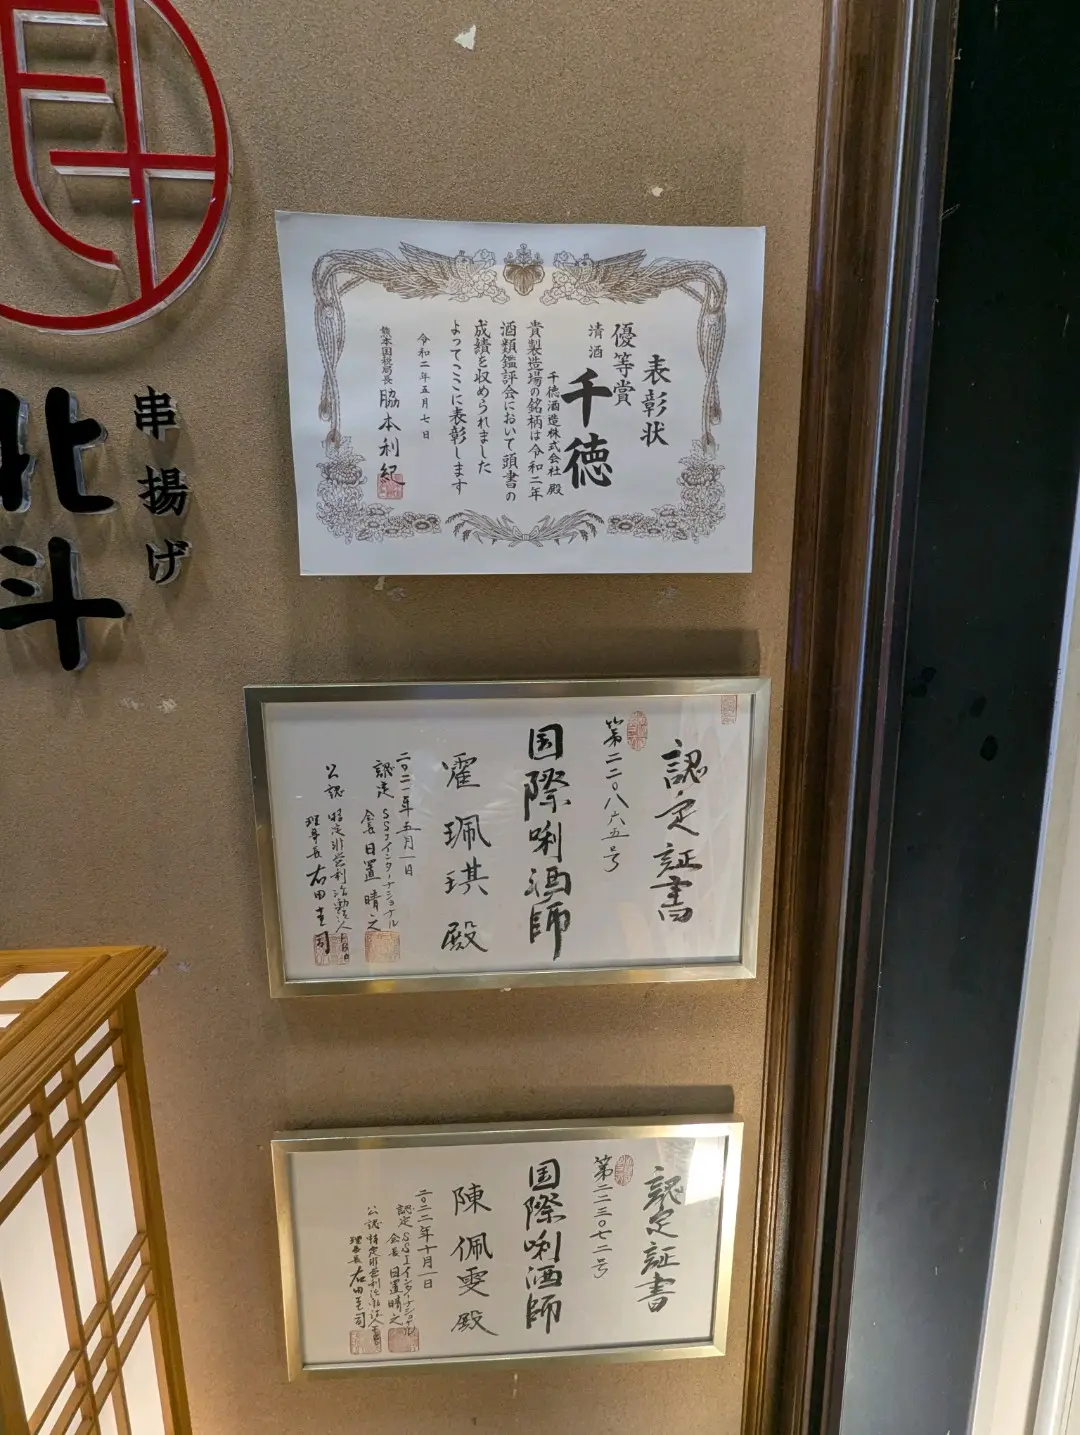 串揚げ
北斗
表彰状
優等賞
清酒 千徳
千徳酒造株式会社 殿
貴製造場の銘柄は令和二年
酒類鑑評会において頭書の
成績を収められました
よってここに表彰します
令和二年五月七日
熊本国税局長 脇本利紀
認定証書
第二二〇八六五号
国際唎酒師
霍珮琪 殿
二〇二一年五月一日
認定 SSIインターナショナル
会長 日置晴之
公認 特定非営利活動法人
理事長 右田圭司
認定証書
第二二三〇七二号
国際唎酒師
陳佩雯 殿
二〇二二年十月一日
認定 SSIインターナショナル
会長 日置晴之
公認 特定非営利活動法人
理事長 右田圭司